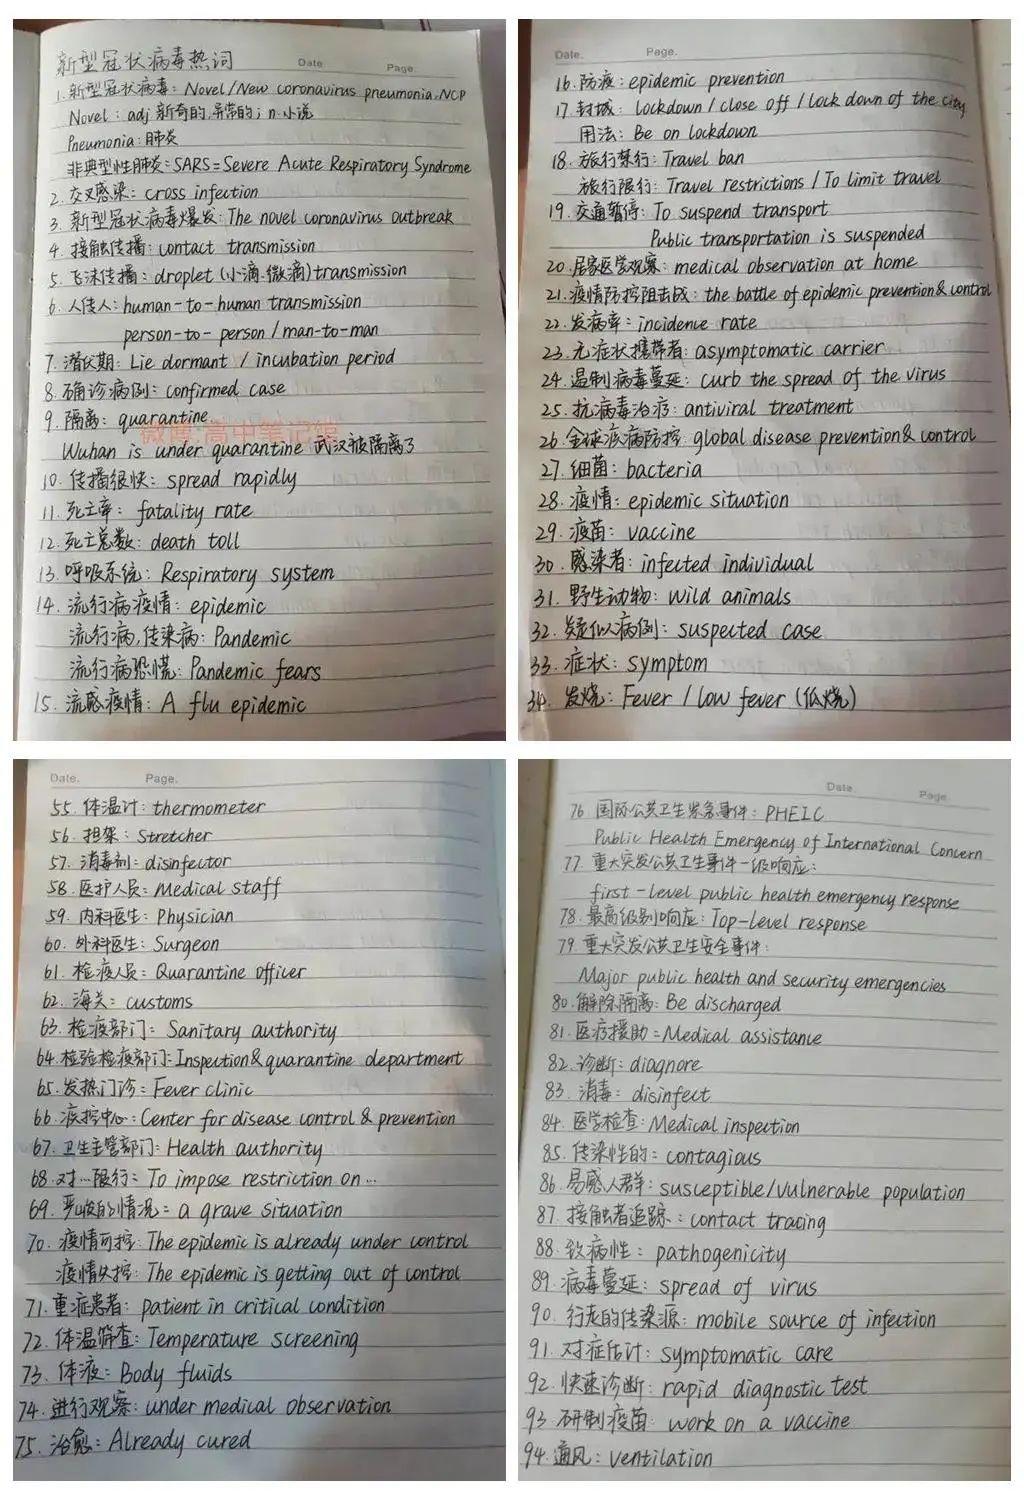 新型冠状病毒热词
Date Page.
1. 新型冠状病毒: Novel/New coronavirus pneumonia, NCP
Novel: adj 新奇的,异常的; n.小说
Pneumonia: 肺炎
非典型性肺炎: SARS=Severe Acute Respiratory Syndrome
2. 交叉感染: cross infection
3. 新型冠状病毒爆发: The novel coronavirus outbreak
4. 接触传播: contact transmission
5. 飞沫传播: droplet (小滴.微滴) transmission
6. 人传人: human-to-human transmission
person-to-person / man-to-man
7. 潜伏期: Lie dormant / incubation period
8. 确诊病例: confirmed case
9. 隔离: quarantine
微博:高中笔记馆
Wuhan is under quarantine 武汉被隔离了
10. 传播很快: spread rapidly
11. 死亡率: fatality rate
12. 死亡总数: death toll
13. 呼吸系统: Respiratory system
14. 流行病疫情: epidemic
流行病,传染病: Pandemic
流行病恐慌: Pandemic fears
15. 流感疫情: A flu epidemic
Date. Page.
16. 防疫: epidemic prevention
17. 封城: lockdown / close off / lock down of the city
用法: Be on lockdown
18. 旅行禁行: Travel ban
旅行限行: Travel restrictions / To limit travel
19. 交通暂停: To suspend transport
Public transportation is suspended
20. 居家医学观察: medical observation at home
21. 疫情防控阻击战: the battle of epidemic prevention & control
22. 发病率: incidence rate
23. 无症状携带者: asymptomatic carrier
24. 遏制病毒蔓延: curb the spread of the virus
25. 抗病毒治疗: antiviral treatment
26. 全球疾病防控: global disease prevention & control
27. 细菌: bacteria
28. 疫情: epidemic situation
29. 疫苗: vaccine
30. 感染者: infected individual
31. 野生动物: wild animals
32. 疑似病例: suspected case
33. 症状: symptom
34. 发烧: Fever / low fever (低烧)
Date. Page.
55. 体温计: thermometer
56. 担架: Stretcher
57. 消毒剂: disinfector
58. 医护人员: Medical staff
59. 内科医生: Physician
60. 外科医生: Surgeon
61. 检疫人员: Quarantine officer
62. 海关: customs
63. 检疫部门: Sanitary authority
64. 检验检疫部门: Inspection & quarantine department
65. 发热门诊: Fever clinic
66. 疾控中心: Center for disease control & prevention
67. 卫生主管部门: Health authority
68. 对…限行: To impose restriction on …
69. 严峻的情况: a grave situation
70. 疫情可控: The epidemic is already under control
疫情失控: The epidemic is getting out of control
71. 重症患者: patient in critical condition
72. 体温筛查: Temperature screening
73. 体液: Body fluids
74. 进行观察: under medical observation
75. 治愈: Already cured
Date. Page
76 国际公共卫生紧急事件: PHEIC
Public Health Emergency of International Concern
77. 重大突发公共卫生事件一级响应:
first-level public health emergency response
78. 最高级别响应: Top-level response
79. 重大突发公共卫生安全事件:
Major public health and security emergencies
80. 解除隔离: Be discharged
81. 医疗援助: Medical assistance
82. 诊断: diagnore
83. 消毒: disinfect
84. 医学检查: Medical inspection
85. 传染性的: contagious
86. 易感人群: susceptible/vulnerable population
87. 接触者追踪: contact tracing
88. 致病性: pathogenicity
89. 病毒蔓延: spread of virus
90. 行走的传染源: mobile source of infection
91. 对症估计: symptomatic care
92. 快速诊断: rapid diagnostic test
93. 研制疫苗: work on a vaccine
94. 通风: ventilation